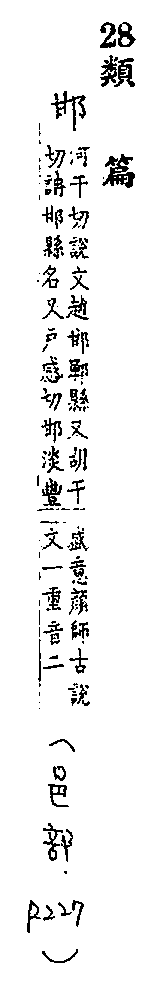 28類篇
邯
河干切說文趙邯鄲縣又胡干
切誦邯縣名又戶感切邯淡豐
盛意顏師古說
文一重音二
(邑部.P227)